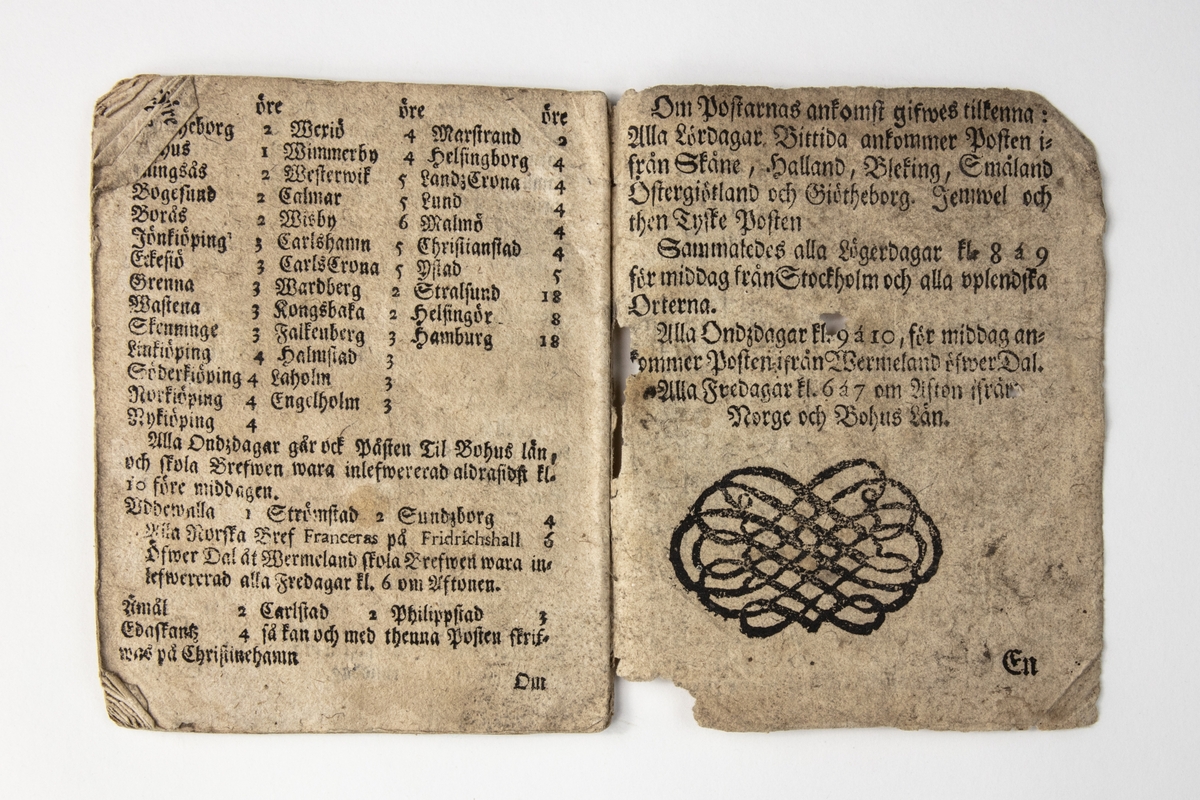 öre öre öre
2 Wexiö 4 Marstrand 2
1 Wimmerby 4 Helsingborg 4
2 Westerwik 5 LandzCrona 4
Bogesund 2 Calmar 5 Lund 4
Borås 2 Wisby 6 Malmö 4
Jönkiöping 3 Carlshamn 5 Christianstad 4
Eckesiö 3 CarlsCrona 5 Ystad 5
Grenna 3 Wardberg 2 Stralsund 18
Wastena 3 Kongsbaka 2 Helsingör 8
Skenninge 3 Falkenberg 3 Hamburg 18
Linkiöping 4 Halmstad 3
Söderkiöping 4 Laholm 3
Norkiöping 4 Engelholm 3
Nykiöping 4
Alla Ondzdagar går ock Påsten Til Bohus län,
och skola Brefwen wara inlefwererad aldrasidst kl.
10 före middagen.
Uddewalla 1 Strömstad 2 Sundzborg 4
Alla Norska Bref Franceras på Fridrichshall 6
Öfwer Dal åt Wermeland skola Brefwen wara in-
lefwererad alla Fredagar kl. 6 om Aftonen.
Åmål 2 Carlstad 2 Philippstad 3
Edaskantz 4 så kan och med thenna Posten skrif-
was på Christinehamn
Om
Om Postarnas ankomst gifwes tilkenna:
Alla Lördagar Bittida ankommer Posten i-
från Skåne, Halland, Bleking, Småland
Östergiötland och Giötheborg. Jemwel och
then Tyske Posten
Sammaledes alla Lögerdagar kl. 8 á 9
för middag från Stockholm och alla uplendska
Orterna.
Alla Ondzdagar kl. 9 á 10, för middag an-
kommer Posten ifrån Wermeland öfwer Dal.
Alla Fredagar kl. 6 á 7 om Afton ifrån
Norge och Bohus Län.
En